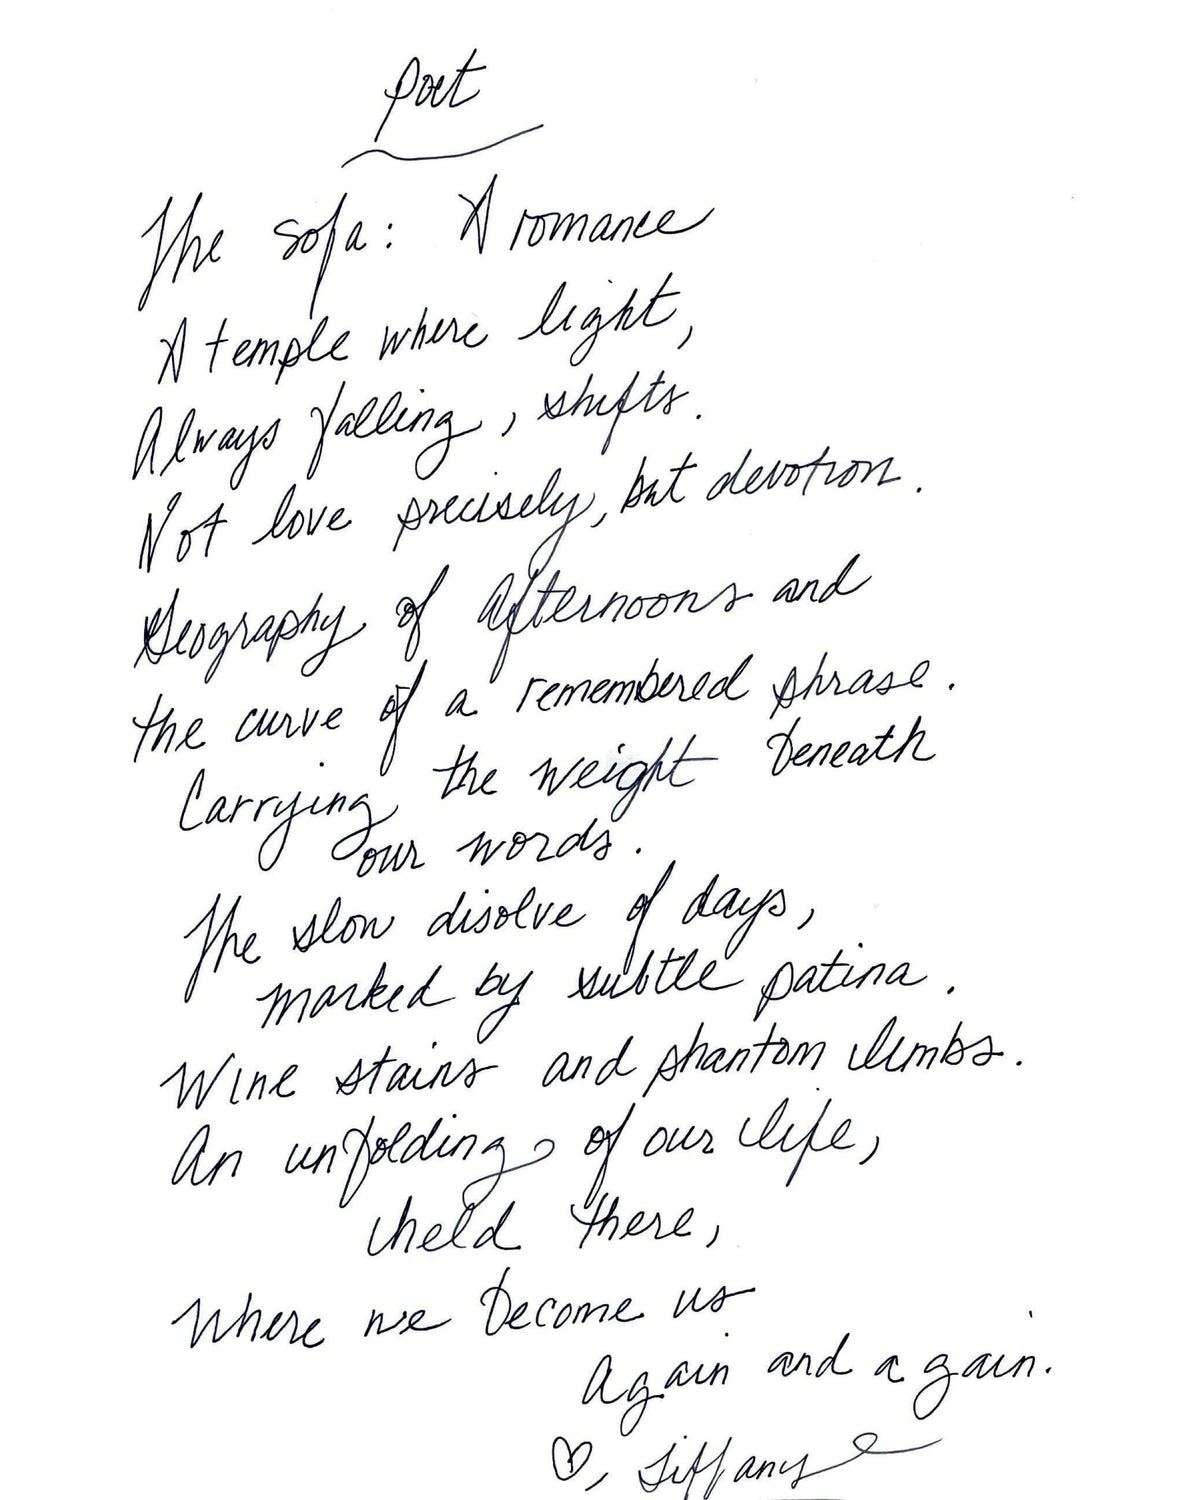 Poet
The sofa: A romance
A temple where light,
Always falling, shifts.
Not love precisely, but devotion.
Geography of afternoons and
the curve of a remembered phrase.
Carrying the weight beneath
our words.
The slow disolve of days,
marked by subtle patina.
Wine stains and phantom limbs.
An unfolding of our life,
held there,
Where we become us
Again and again.
♡, Tiffany